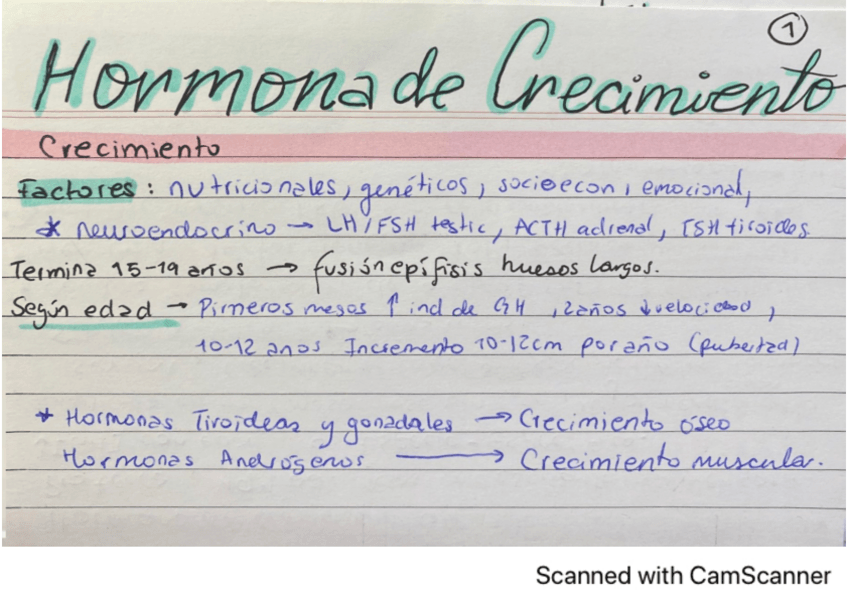 1
Hormona de Crecimiento
Crecimiento
Factores : nutricionales, genéticos, socioecon, emocional,
* neuroendocrino → LH/FSH testic, ACTH adrenal, TSH tiroides
Termina 15-19 años → fusión epífisis huesos largos.
Según edad → Pirmeros meses ↑ ind de GH , 2años ↓velocidad ,
10-12 anos Incremento 10-12cm por año (pubertad)
* Hormonas Tiroideas y gonadales → Crecimiento óseo
Hormonas Andrógenos → Crecimiento muscular.
Scanned with CamScanner